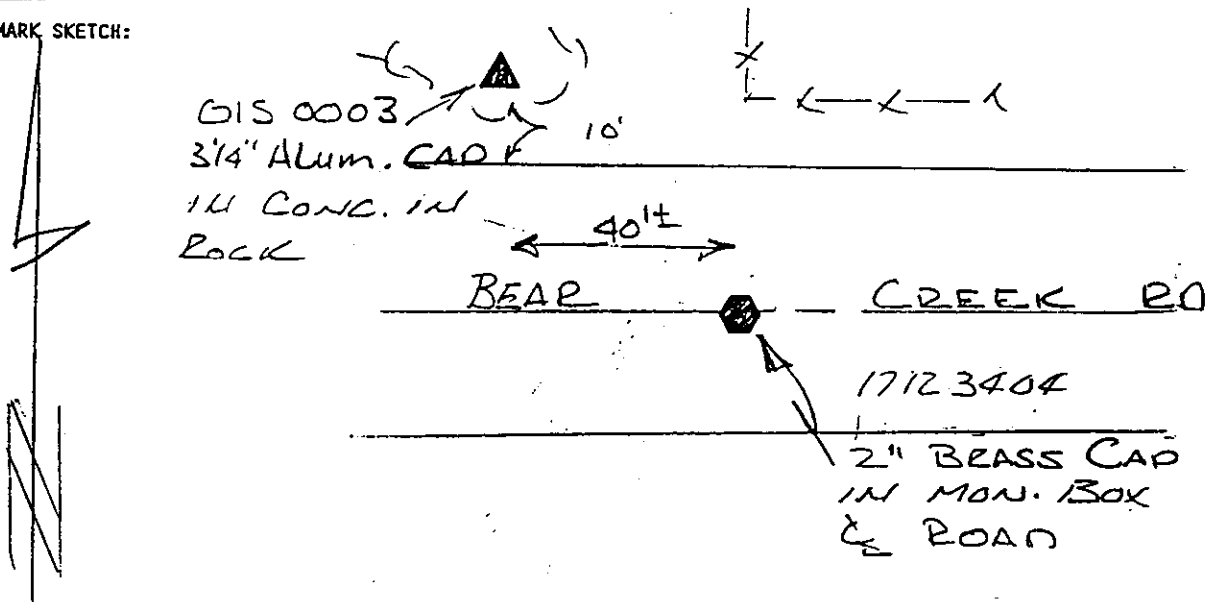 MARK SKETCH:
GIS 0003
3 1/4" ALUM. CAP
IN CONC. IN
ROCK
10'
40'±
BEAR CREEK RD
17123404
2" BRASS CAP
IN MON. BOX
℄ ROAD
N